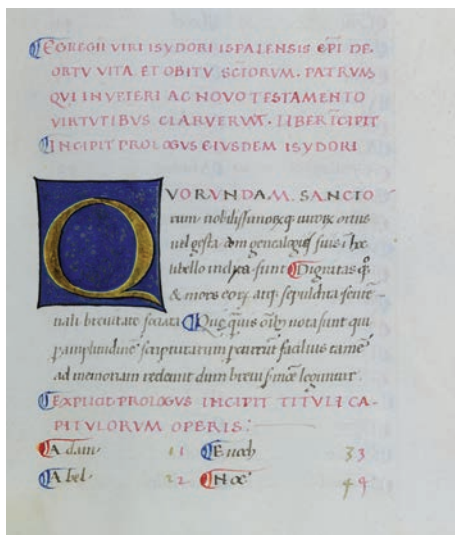 EGREGII VIRI ISYDORI ISPALENSIS EPI DE
ORTV VITA ET OBITV SCTORVM. PATRVM
QVI IN VETERI AC NOVO TESTAMENTO
VIRTVTIBVS CLARVERVNT. LIBER ICIPIT
INCIPIT PROLOGVS EIVSDEM ISYDORI
QVORVNDAM. SANCTO
rum nobilissimorꝝ q uirorꝝ ortus
uel gesta cum genealogiis suis i hoc
libello indita sunt Dignitas qͦ
& mors eorꝝ atq; sepultura senten
tiali breuitate notata Que quis oib; nota sunt qui
p amplitudinē scripturarum pcurrūt facilius tamē
ad memoriam redeunt dum breui smōe leguntur.
EXPLICIT PROLOGVS INCIPIT TITVLI CA-
PITVLORVM OPERIS:
Adam 1 1 Enoch 3 3
Abel 2 2 Noe 4 4